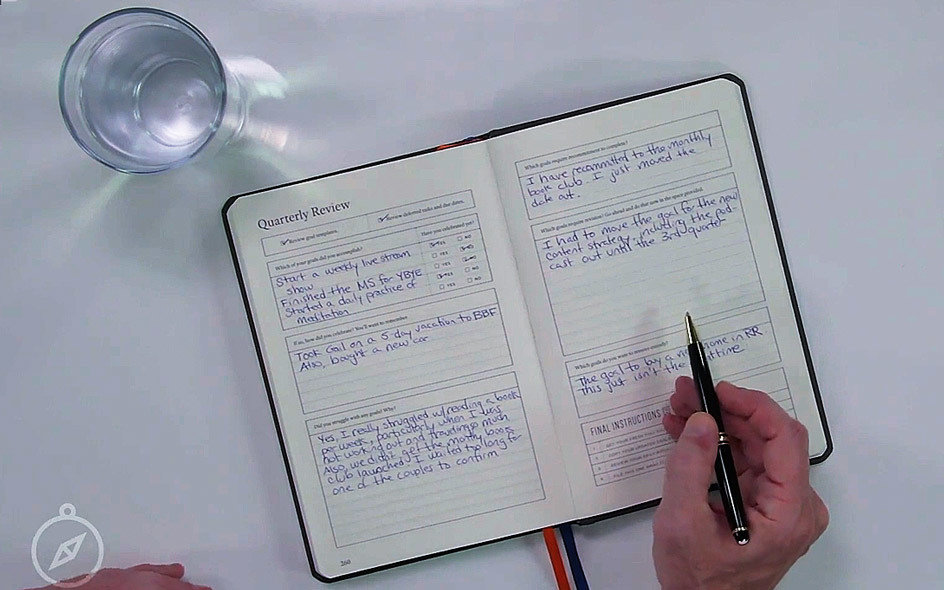 Quarterly Review
Review goal templates.
Review deferred tasks and due dates.
Which of your goals did you accomplish?
Have you celebrated yet?
Start a weekly live stream
show
YES NO
Finished the MS for YBYE
YES NO
Started a daily practice of
meditation
YES NO
YES NO
If so, how did you celebrate? You'll want to remember.
Took Gail on a 5 day vacation to BBF
Also, bought a new car
Did you struggle with any goals? Why?
Yes, I really struggled w/reading a book
per week, particularly when I was
not working out and traveling so much
Also, we didn't get the mothly book
club launched. I waited too long for
one of the couples to confirm
260
Which goals require recommitment to complete?
I have recommitted to the monthly
book club. I just moved the
date out.
Which goals require revision? Go ahead and do that now in the space provided.
I had to move the goal for the new
content strategy including the pod-
cast out until the 3rd quarter
Which goals do you want to remove entirely?
The goal to buy a home in RR
This just isn't the time.
FINAL INSTRUCTIONS